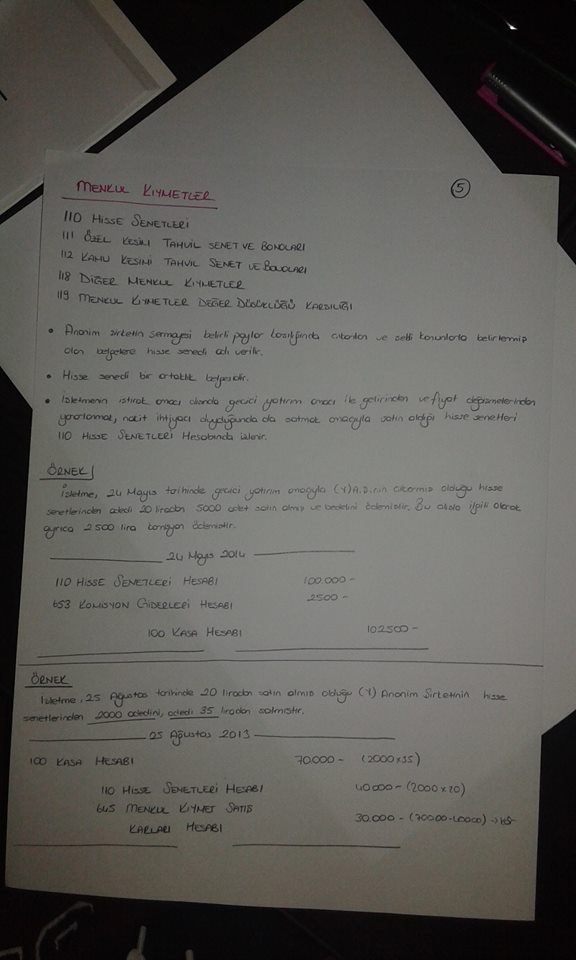 MENKUL KIYMETLER
5
110 HİSSE SENETLERİ
111 ÖZEL KESİM TAHVİL SENET VE BONOLARI
112 KAMU KESİMİ TAHVİL SENET VE BONOLARI
118 DİĞER MENKUL KIYMETLER
119 MENKUL KIYMETLER DEĞER DÜŞÜKLÜĞÜ KARŞILIĞI
• Anonim şirketin sermayesi belirli paylar karşılığında çıkarılan ve şekli kanunlarla belirlenmiş
olan belgelere hisse senedi adı verilir.
• Hisse senedi bir ortaklık belgesidir.
• İşletmenin iştirak amacı dışında geçici yatırım amacı ile gelirinden ve fiyat değişmelerinden
yararlanmak, nakit ihtiyacı duyduğunda da satmak amacıyla satın aldığı hisse senetleri
110 HİSSE SENETLERİ Hesabında izlenir.
ÖRNEK
İşletme, 24 Mayıs tarihinde geçici yatırım amacıyla (Y) A.Ş.nin çıkarmış olduğu hisse
senetlerinden adedi 20 liradan 5000 adet satın almış ve bedelini ödemiştir. Bu alışla ilgili olarak
ayrıca 2500 lira komisyon ödemiştir.
24 Mayıs 2014
110 HİSSE SENETLERİ HESABI 100.000-
653 KOMİSYON GİDERLERİ HESABI 2500-
100 KASA HESABI 102500-
ÖRNEK
İşletme, 25 Ağustos tarihinde 20 liradan satın almış olduğu (Y) Anonim Şirketinin hisse
senetlerinden 2000 adedini, adedi 35 liradan satmıştır.
25 Ağustos 2013
100 KASA HESABI 70.000- (2000x35)
110 HİSSE SENETLERİ HESABI 40.000- (2000x20)
645 MENKUL KIYMET SATIŞ
KARLARI HESABI 30.000- (70000-40000)